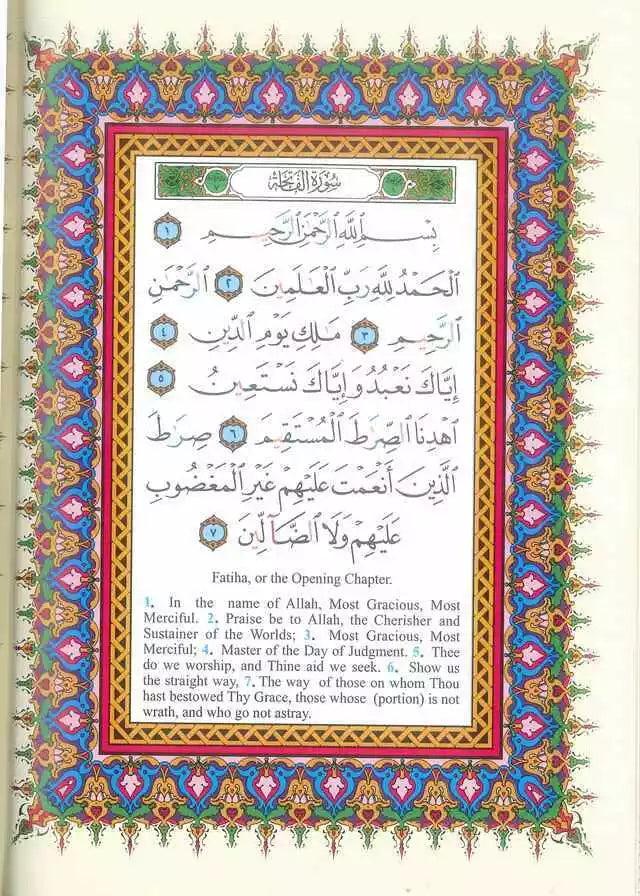 سُورَةُ الْفَاتِحَة
بِسْمِ اللَّهِ الرَّحْمَٰنِ الرَّحِيمِ ١
الْحَمْدُ لِلَّهِ رَبِّ الْعَالَمِينَ ٢ الرَّحْمَٰنِ
الرَّحِيمِ ٣ مَالِكِ يَوْمِ الدِّينِ ٤
إِيَّاكَ نَعْبُدُ وَإِيَّاكَ نَسْتَعِينُ ٥
اهْدِنَا الصِّرَاطَ الْمُسْتَقِيمَ ٦ صِرَاطَ
الَّذِينَ أَنْعَمْتَ عَلَيْهِمْ غَيْرِ الْمَغْضُوبِ
عَلَيْهِمْ وَلَا الضَّالِّينَ ٧
Fatiha, or the Opening Chapter.
1. In the name of Allah, Most Gracious, Most
Merciful. 2. Praise be to Allah, the Cherisher and
Sustainer of the Worlds; 3. Most Gracious, Most
Merciful; 4. Master of the Day of Judgment. 5. Thee
do we worship, and Thine aid we seek. 6. Show us
the straight way, 7. The way of those on whom Thou
hast bestowed Thy Grace, those whose (portion) is not
wrath, and who go not astray.